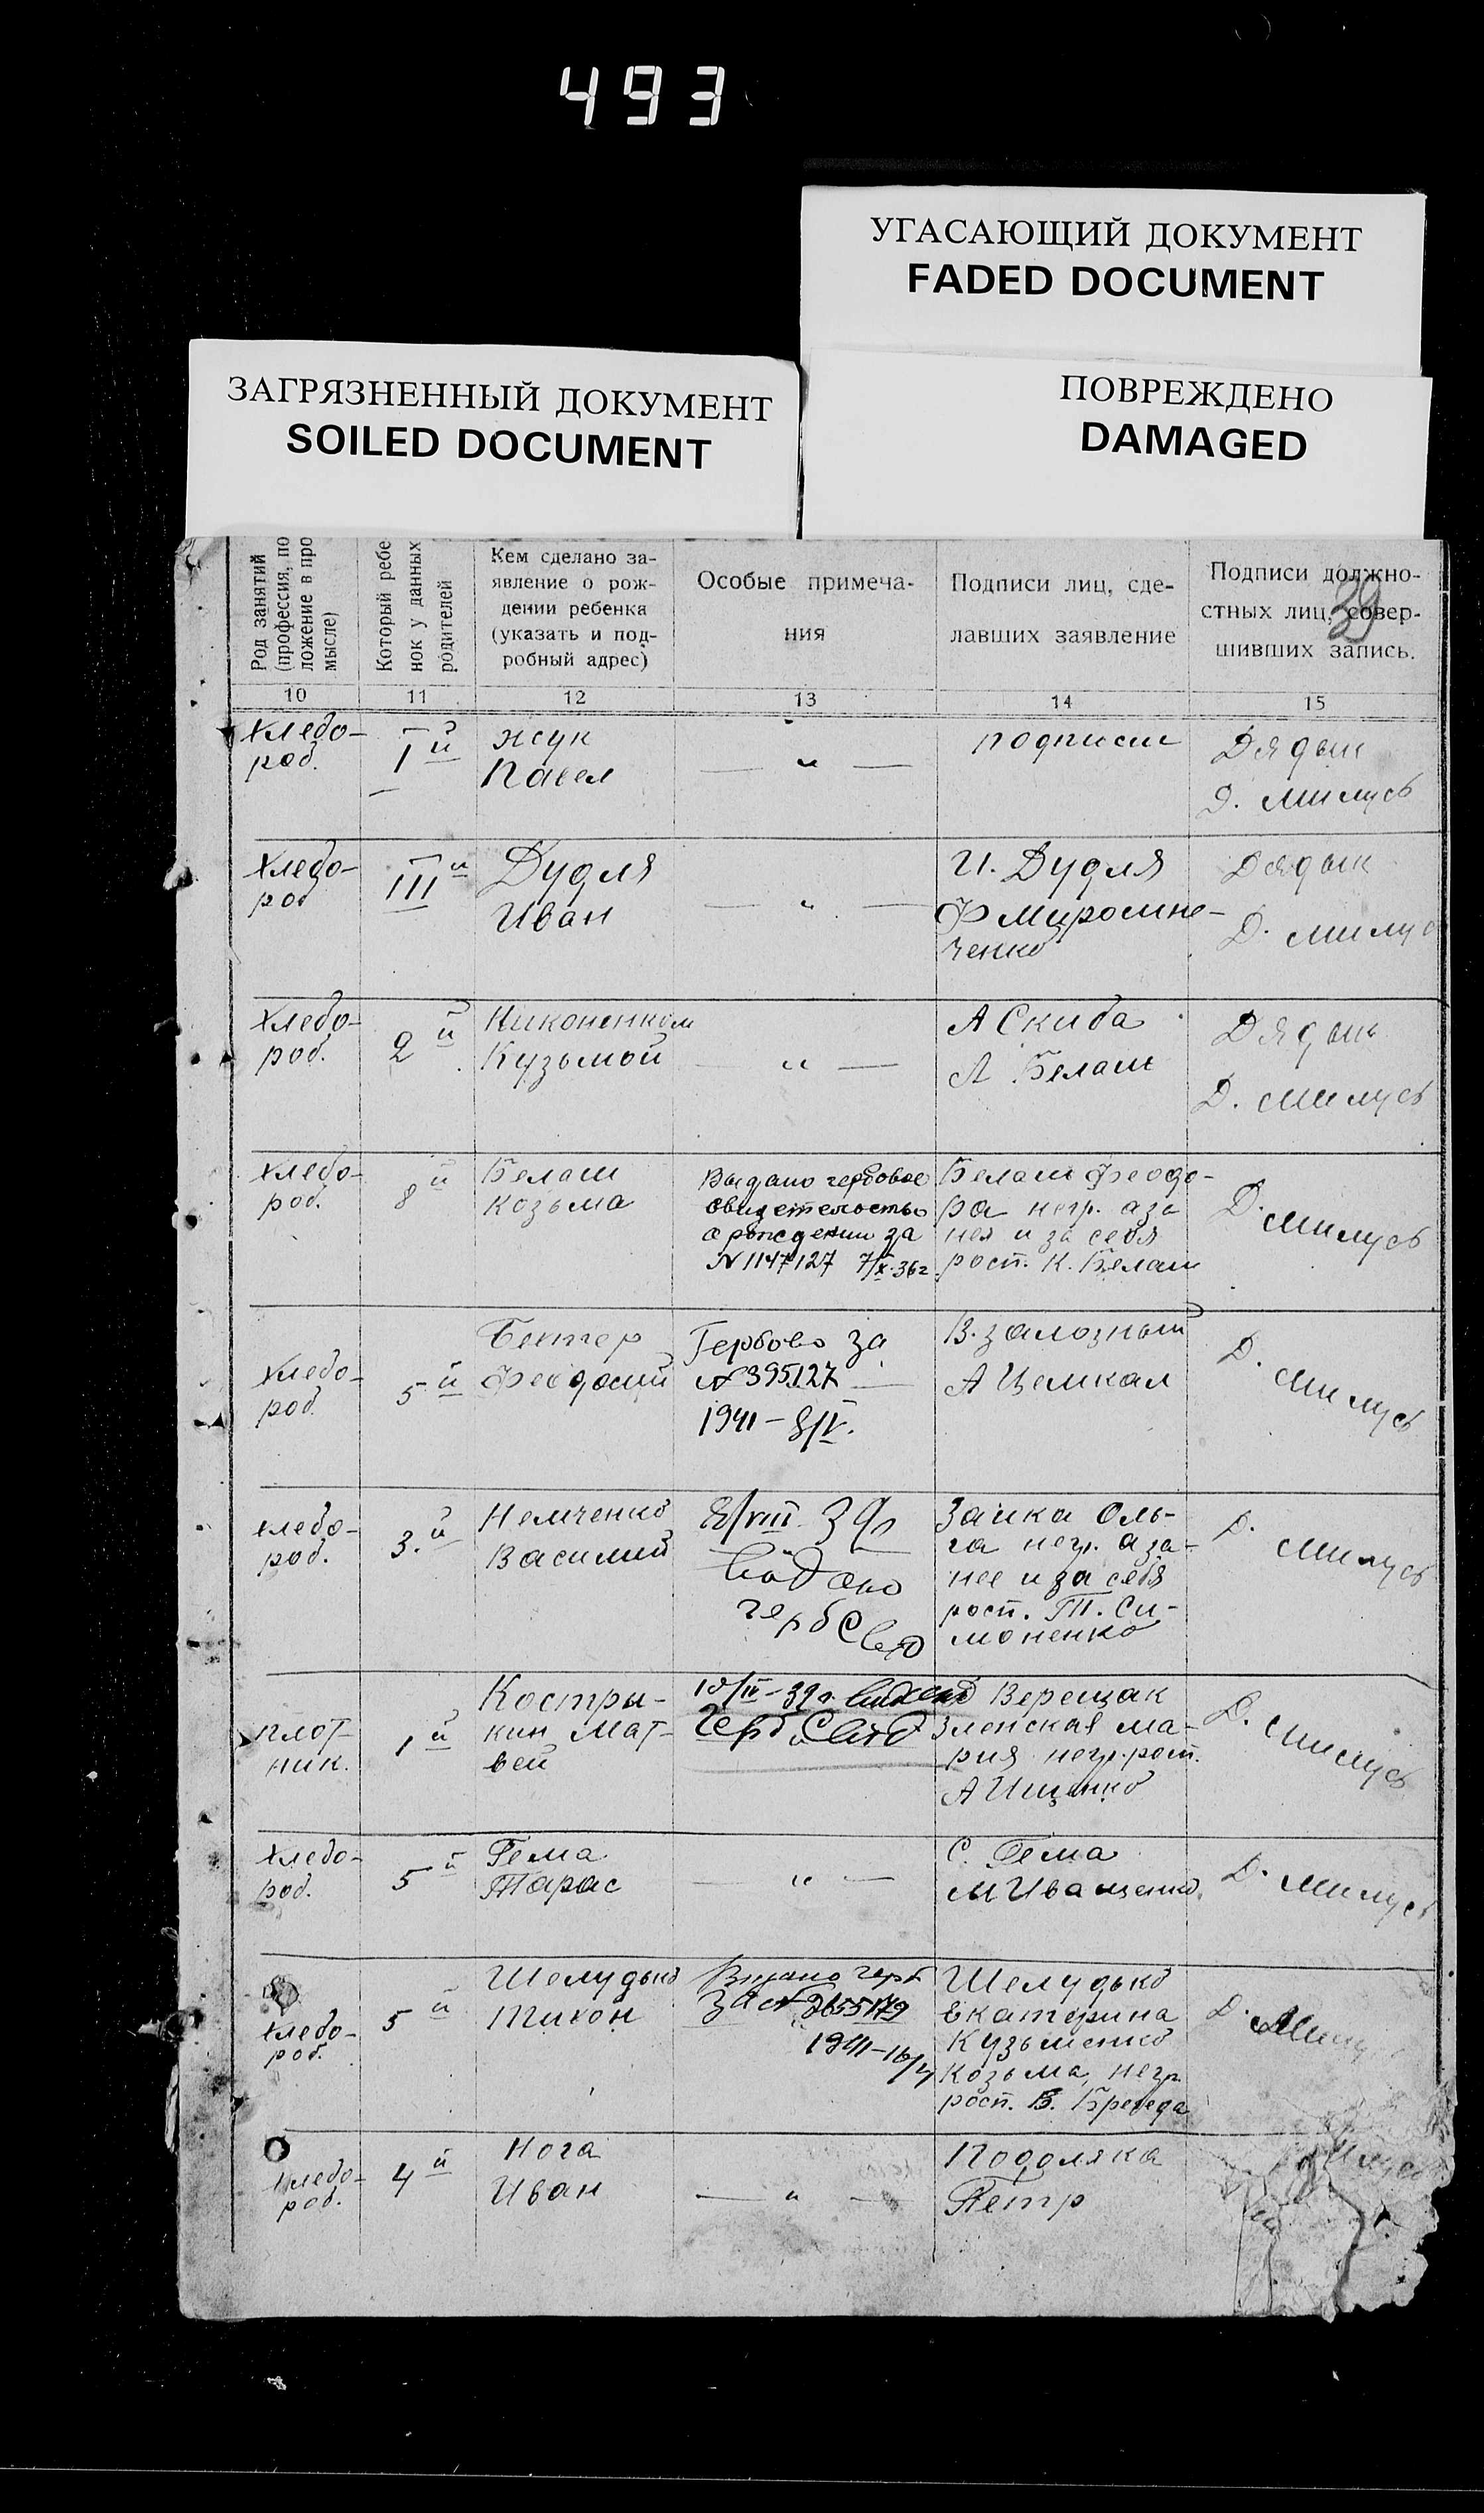 493
УГАСАЮЩИЙ ДОКУМЕНТ
FADED DOCUMENT
ЗАГРЯЗНЕННЫЙ ДОКУМЕНТ
SOILED DOCUMENT
ПОВРЕЖДЕНО
DAMAGED
39
Род занятий
(профессия, по
ложение в про
мысле)
Который ребе
нок у данных
родителей
Кем сделано за-
явление о рож-
дении ребенка
(указать и под-
робный адрес)
Особые примеча-
ния
Подписи лиц, сде-
лавших заявление
Подписи должно-
стных лиц, совер-
шивших запись.
10 11 12 13 14 15
Хлебо-
род.
I й
Жук
Павел
— " —
подписи
Дядык
Д. Милусь
Хлебо-
род
III й
Дудля
Иван
— " —
И. Дудля
Ф Миромне-
ченко
Дядык
Д. Милус
Хлебо-
род.
2 й
Никоненком
Кузьмой
— " —
А Скиба
А Белаш
Дядык
Д. Милусь
Хлебо-
род.
8 й
Белаш
Козьма
Выдано гербовое
свидетельство
о рождении за
№ 1147127 7/X-36г.
Белаш Феодо-
ра негр. а за
нея и за себя
росп. К. Белаш
Д. Милусь
Хлебо-
род.
5 й
Бектер
Феодосий
Гербово за
№ 395127
1941 – 8/IV.
В. Залозный
А Цемкал
Д.
Милусь
хлебо-
род.
3. й
Немченко
Василий
8/VIII 39г
выдано
герб Свид
Заика Оль-
га негр. а за-
нее и за себя
росп. Т. Си-
моненко
Д.
Милусь
плот-
ник.
1 й
Костры-
кин Мат-
вей
10/IV-39г. выдано
Герб Свид
Верещак
Зленская Ма-
рия негр. росп.
А Ищенко
Д. Милусь
Хлебо-
род.
5 й
Гема
Тарас
— " —
С. Гема
М Иващенко
Д. Милусь
Хлебо-
род.
5 й
Шелудько
Тихон
Видано герб
за № 2655179
1941–16/V
Шелудько
Екатерина
Кузьменко
Козьма, негр
росп. В. Бреведа
Д. Милу
Хлебо-
род.
4 й
Нога
Иван
— " —
Подоляка
Петр
Милусь